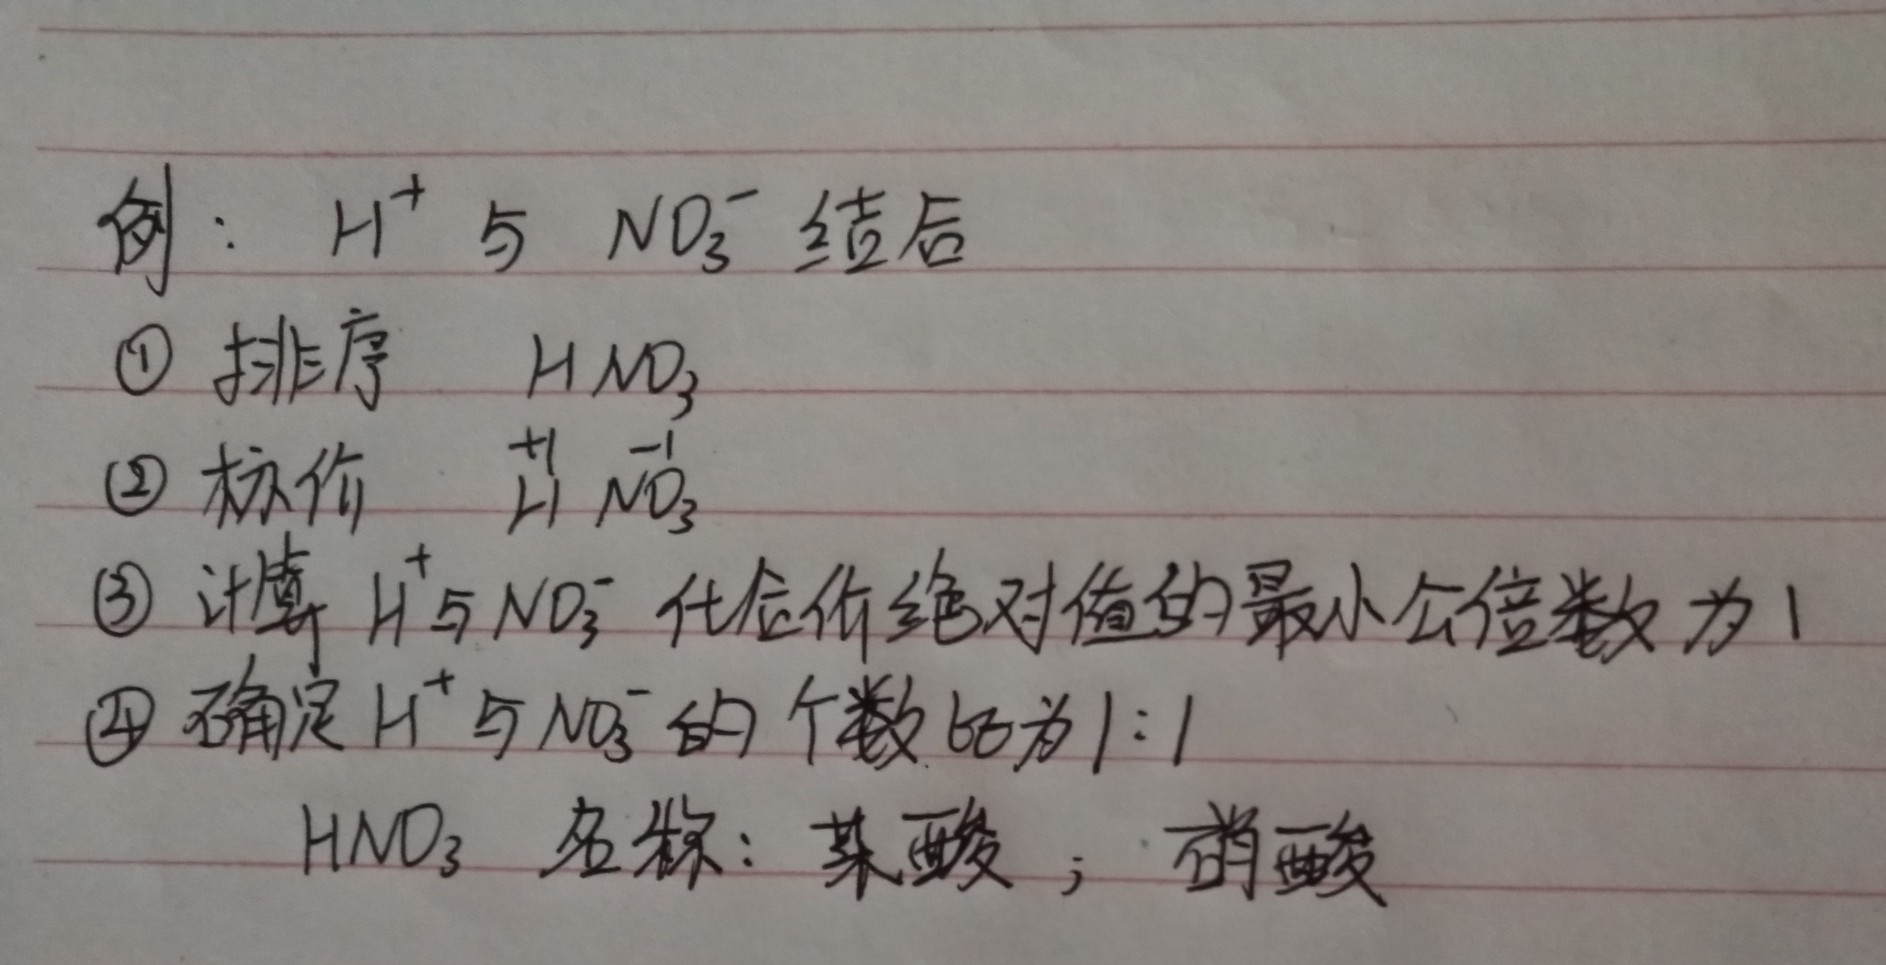 例: H⁺ 与 NO₃⁻ 结后
① 排序 HNO₃
② 标价 +1 -1 H NO₃
③ 计算 H⁺与NO₃⁻ 化合价绝对值的最小公倍数为1
④ 确定H⁺与NO₃⁻的个数比为1:1
HNO₃ 名称: 某酸; 硝酸